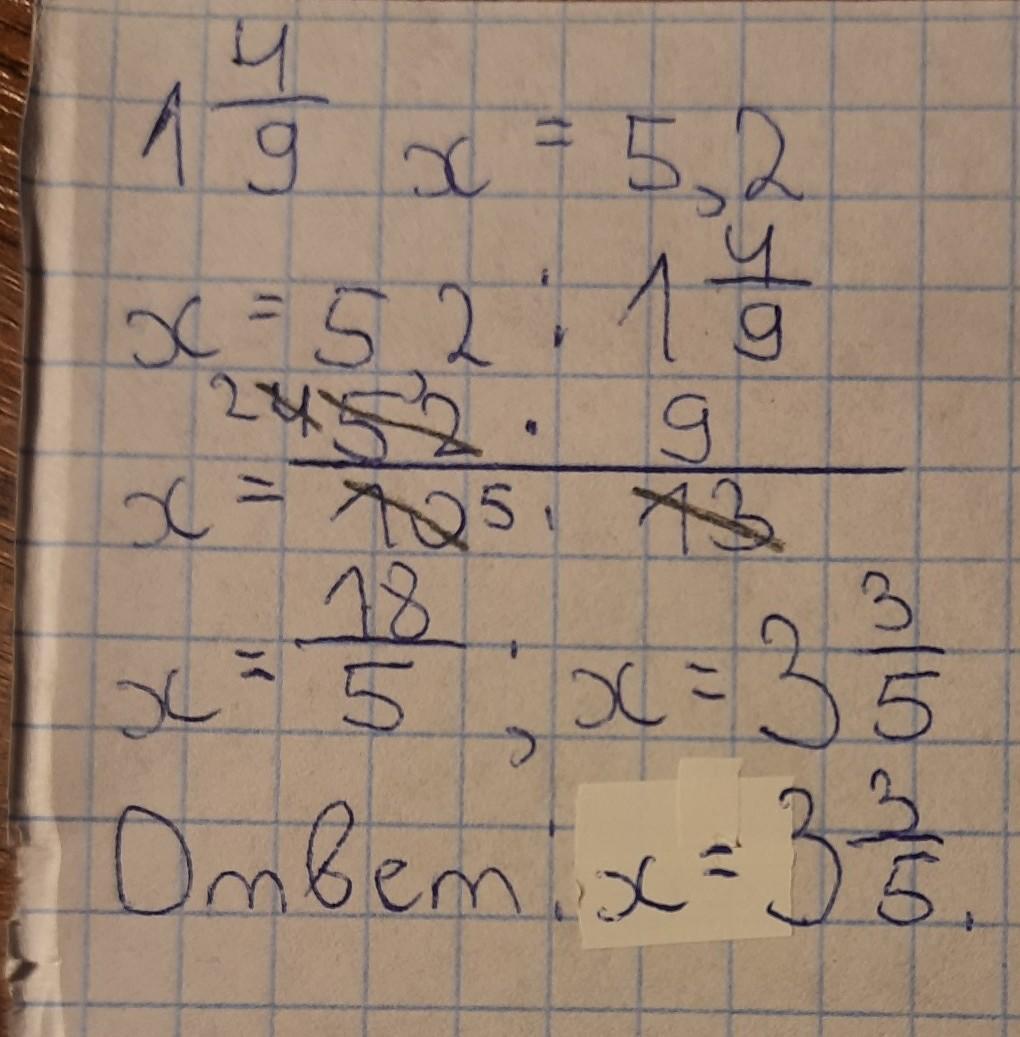 1 4/9 x = 5,2
x = 5,2 : 1 4/9
x = 2 4 52 · 9 / 10 5 · 13
x = 18/5 ; x = 3 3/5
Ответ: x = 3 3/5.